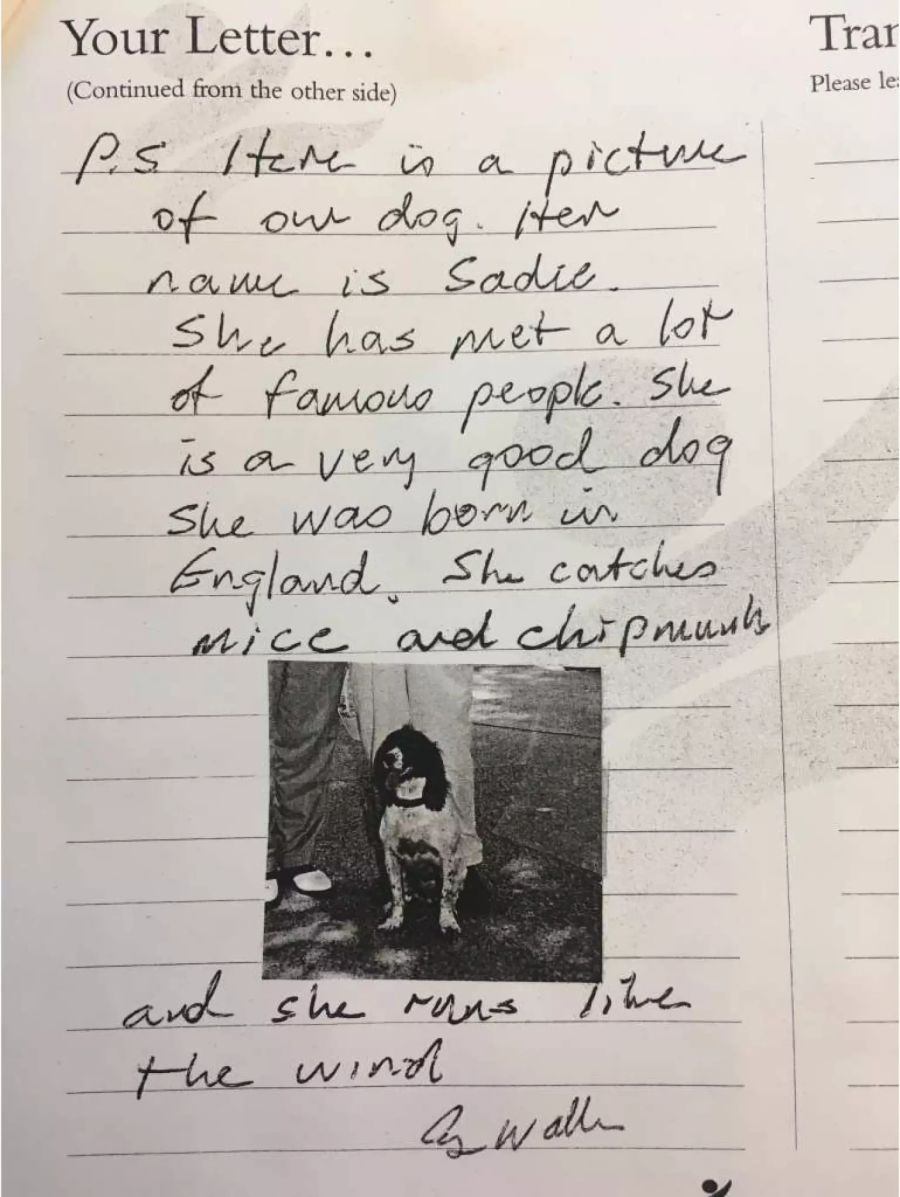 Your Letter...
(Continued from the other side)
P.S. Here is a picture
of our dog. Her
name is Sadie.
She has met a lot
of famous people. She
is a very good dog
She was born in
England. She catches
mice and chipmunks
and she runs like
the wind
Walker
Please